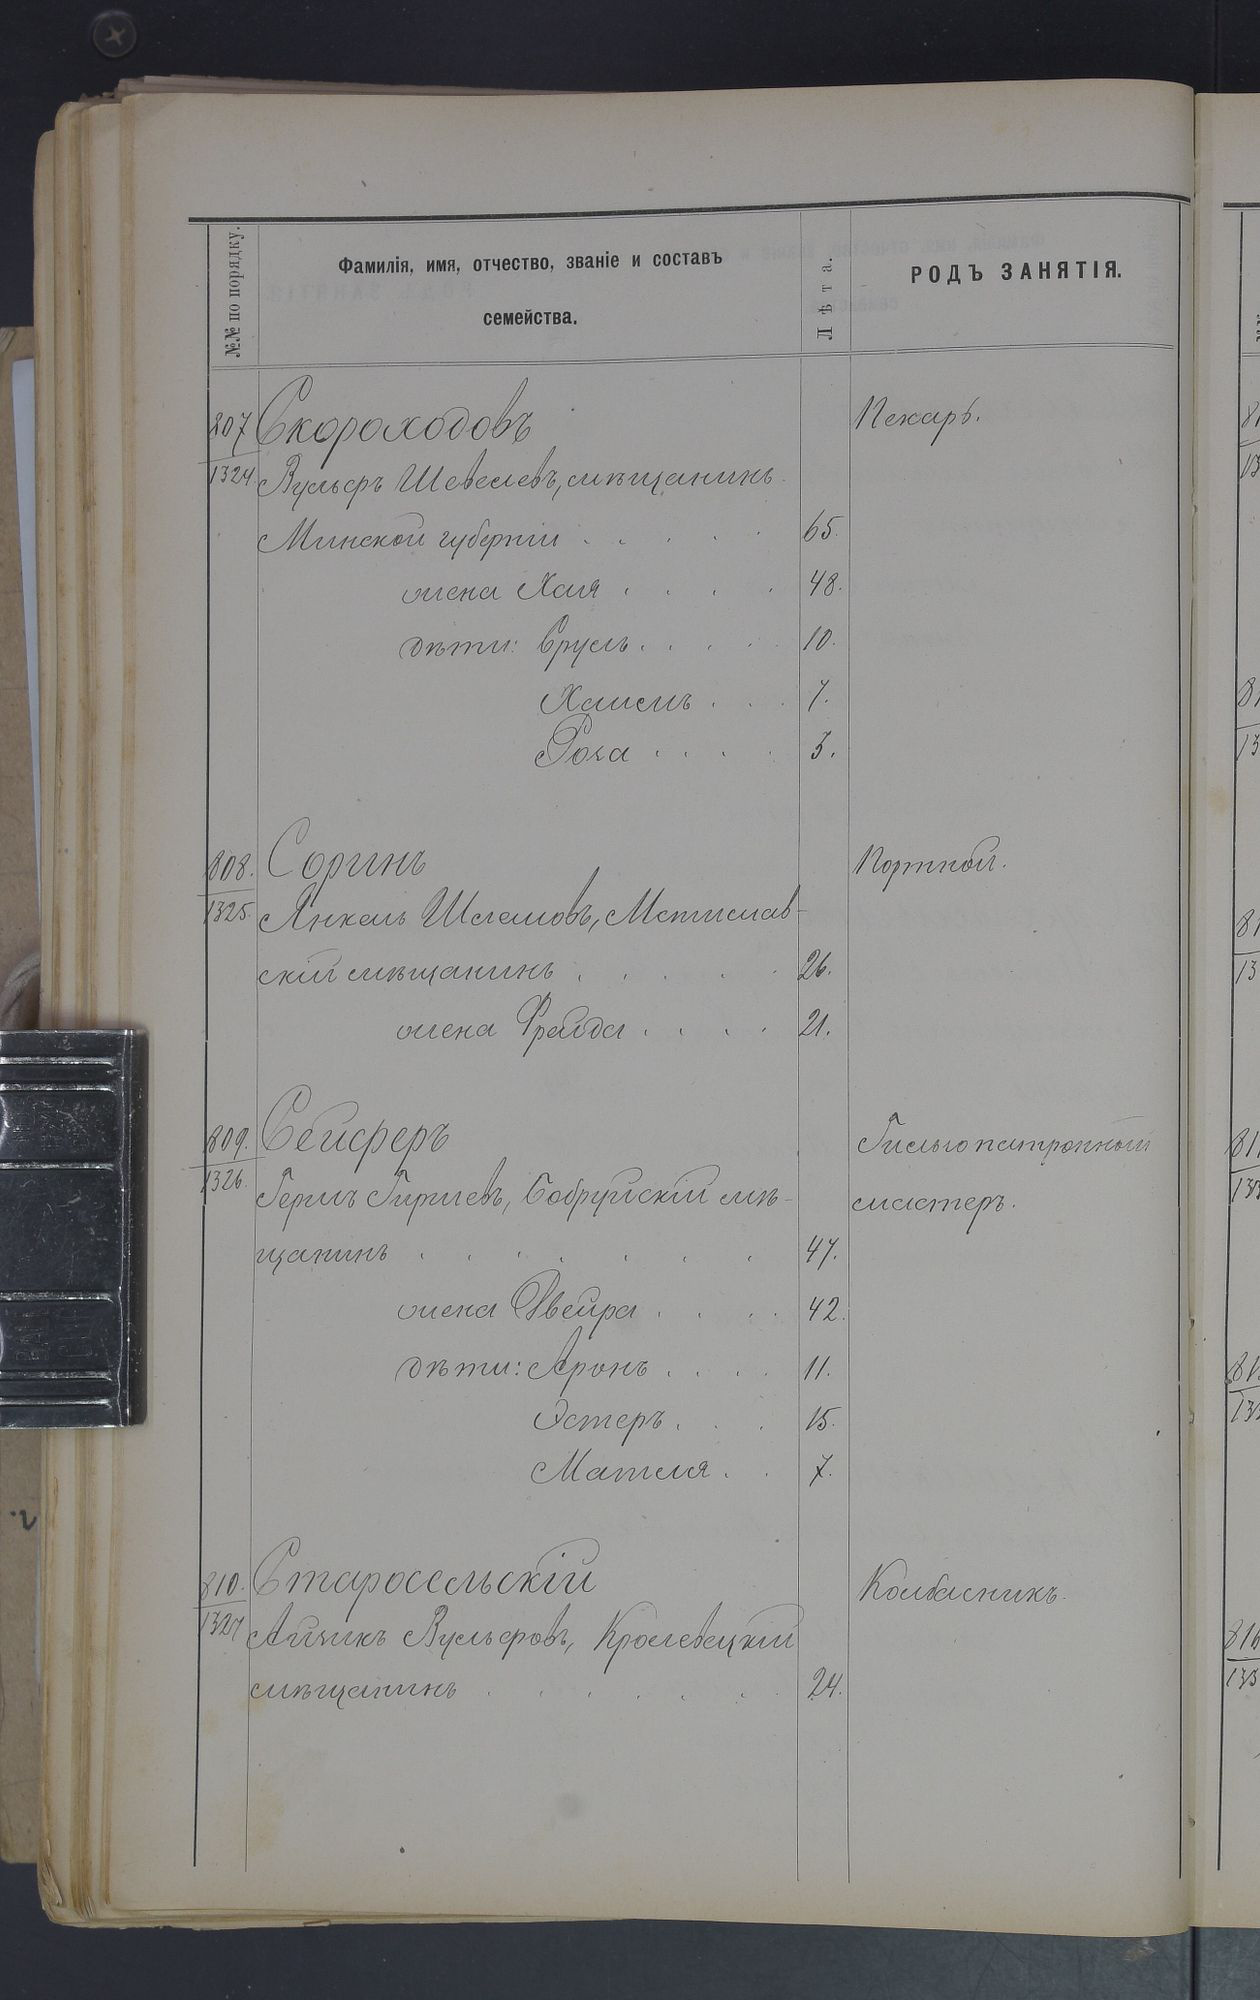 №№ по порядку.
Фамилія, имя, отчество, званіе и составъ
семейства.
Лѣта.
РОДЪ ЗАНЯТІЯ.
807
1324
Скороходовъ
Пекарь.
Вульфъ Шевелевъ, мѣщанинъ
Минской губерніи 65.
жена Хая 48.
дѣти: Сруль 10.
Хаимъ 7.
Роха 3.
808.
1325.
Соринъ
Портной.
Янкель Шлемовъ, Мстислав-
скій мѣщанинъ 26.
жена Фрейда 21.
809.
1326.
Сейферъ
Гильзопатронный
Герцъ Гиршевъ, Бобруйскій мѣ-
мастеръ.
щанинъ 47.
жена Двейра 42.
дѣти: Аронъ 11.
Эстеръ 15.
Матля 7.
810.
1327
Старосельскій
Колбасникъ.
Айзикъ Вульфовъ, Кролевецкій
мѣщанинъ 24.